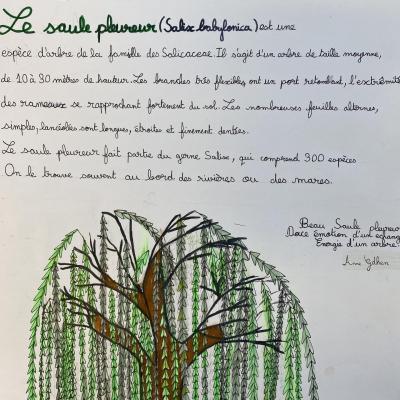 Le saule pleureur (Salix babylonica) est une
espèce d'arbre de la famille des Salicaceae. Il s'agit d'un arbre de taille moyenne,
de 10 à 30 mètres de hauteur. Les branches très flexibles ont un port retombant, l'extrémité
des rameaux se rapprochant fortement du sol. Les nombreuses feuilles alternes,
simples, lancéolés sont longues, étroites et finement dentées.
Le saule pleureur fait partie du genre Salix, qui comprend 300 espèces
On le trouve souvent au bord des rivières ou des mares.
Beau Saule pleureur
Douce émotion d'un échange
Énergie d'un arbre.